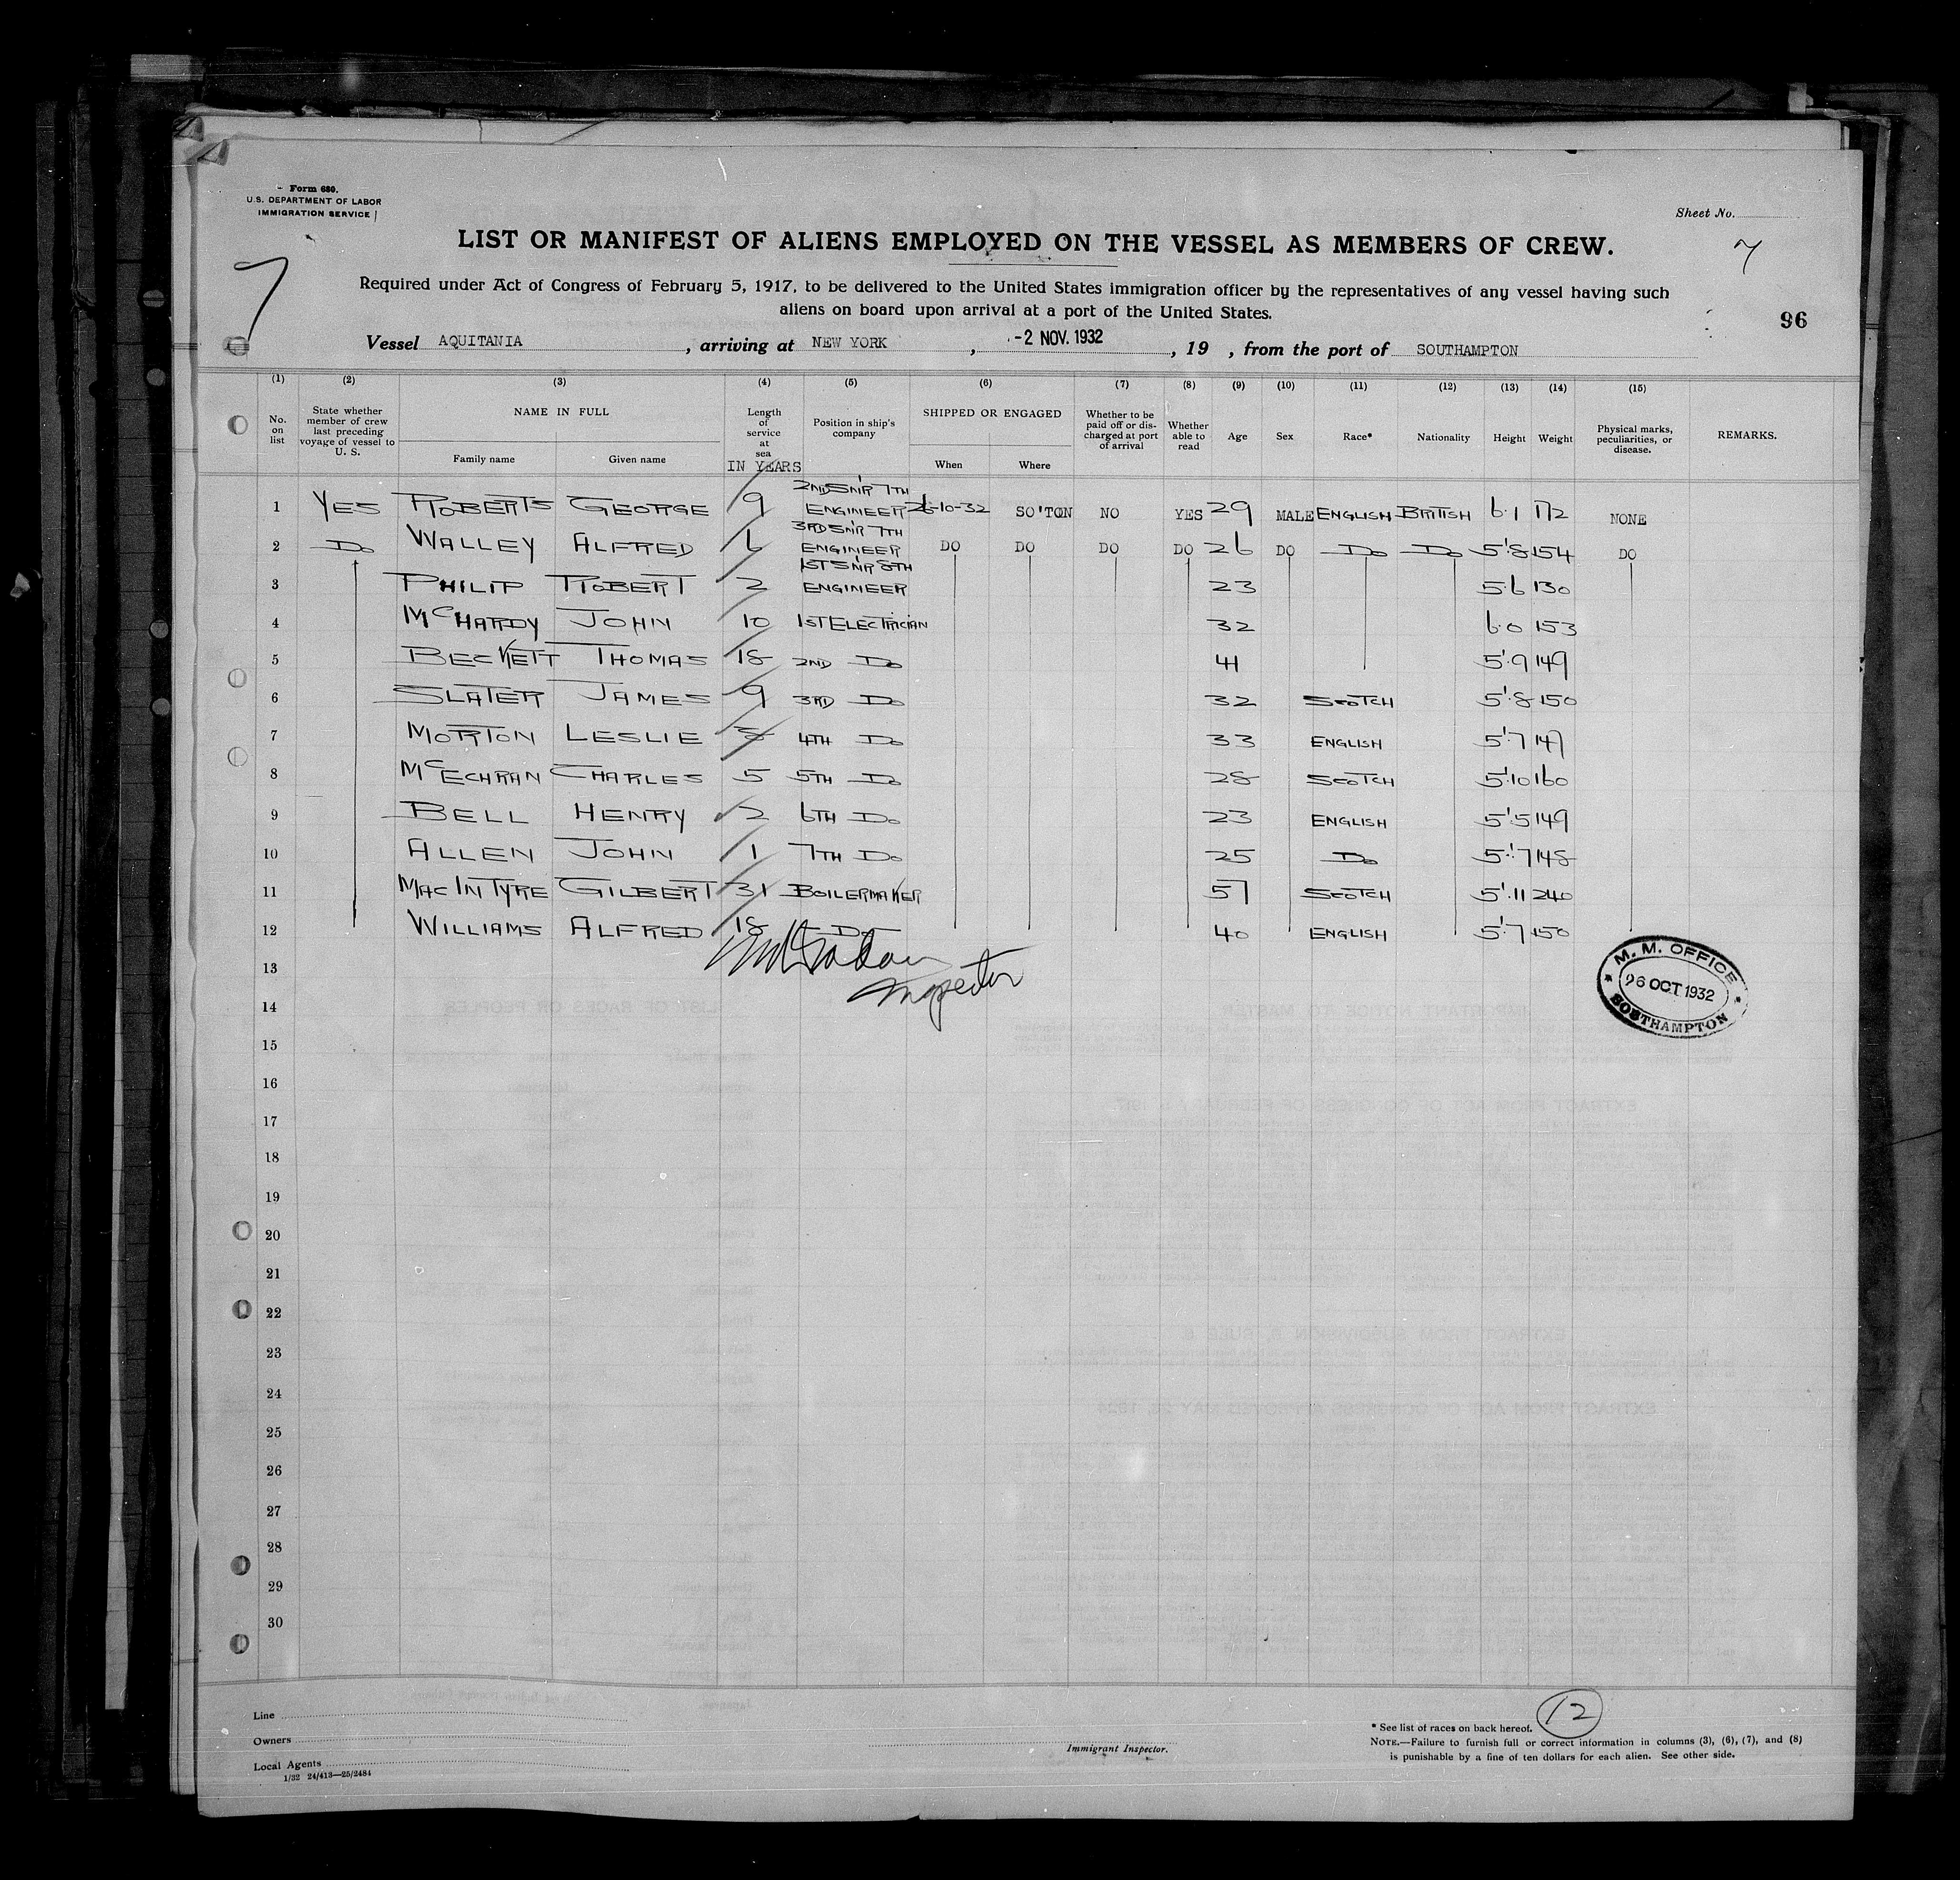 Form 680.
U.S. DEPARTMENT OF LABOR
IMMIGRATION SERVICE
Sheet No.
7
7
LIST OR MANIFEST OF ALIENS EMPLOYED ON THE VESSEL AS MEMBERS OF CREW.
Required under Act of Congress of February 5, 1917, to be delivered to the United States immigration officer by the representatives of any vessel having such
aliens on board upon arrival at a port of the United States.
96
Vessel AQUITANIA, arriving at NEW YORK, -2 NOV. 1932, 19 , from the port of SOUTHAMPTON
(1) (2) (3) (4) (5) (6) (7) (8) (9) (10) (11) (12) (13) (14) (15)
No. on list State whether member of crew last preceding voyage of vessel to U. S. NAME IN FULL Family name Given name Length of service at sea IN YEARS Position in ship's company SHIPPED OR ENGAGED When Where Whether to be paid off or discharged at port of arrival Whether able to read Age Sex Race* Nationality Height Weight Physical marks, peculiarities, or disease. REMARKS.
1 YES ROBERTS GEORGE 9 2ND SNR 7TH ENGINEER 26-10-32 SO'TON NO YES 29 MALE ENGLISH BRITISH 6.1 172 NONE
2 DO WALLEY ALFRED 6 3RD SNR 7TH ENGINEER DO DO DO DO 26 DO DO DO 5'.8 154 DO
3 PHILIP ROBERT 2 1ST SNR 8TH ENGINEER 23 5.6 130
4 McHARDY JOHN 10 1ST ELECTRICIAN 32 6.0 153
5 BECKETT THOMAS 18 2ND DO 41 5'.9 149
6 SLATER JAMES 9 3RD DO 32 SCOTCH 5'.8 150
7 MORTON LESLIE 4TH DO 33 ENGLISH 5'.7 147
8 McECHRAN CHARLES 5 5TH DO 28 SCOTCH 5'.10 160
9 BELL HENRY 2 6TH DO 23 ENGLISH 5'.5 149
10 ALLEN JOHN 1 7TH DO 25 DO 5'.7 148
11 MACINTYRE GILBERT 31 BOILERMAKER 57 SCOTCH 5'.11 240
12 WILLIAMS ALFRED 18 DO 40 ENGLISH 5'.7 150
13
Inspector
M. M. OFFICE
26 OCT 1932
SOUTHAMPTON
14
15
16
17
18
19
20
21
22
23
24
25
26
27
28
29
30
12
Line
Owners
Local Agents
1/32 24/413—25/2484
Immigrant Inspector.
* See list of races on back hereof.
NOTE.—Failure to furnish full or correct information in columns (3), (6), (7), and (8)
is punishable by a fine of ten dollars for each alien. See other side.